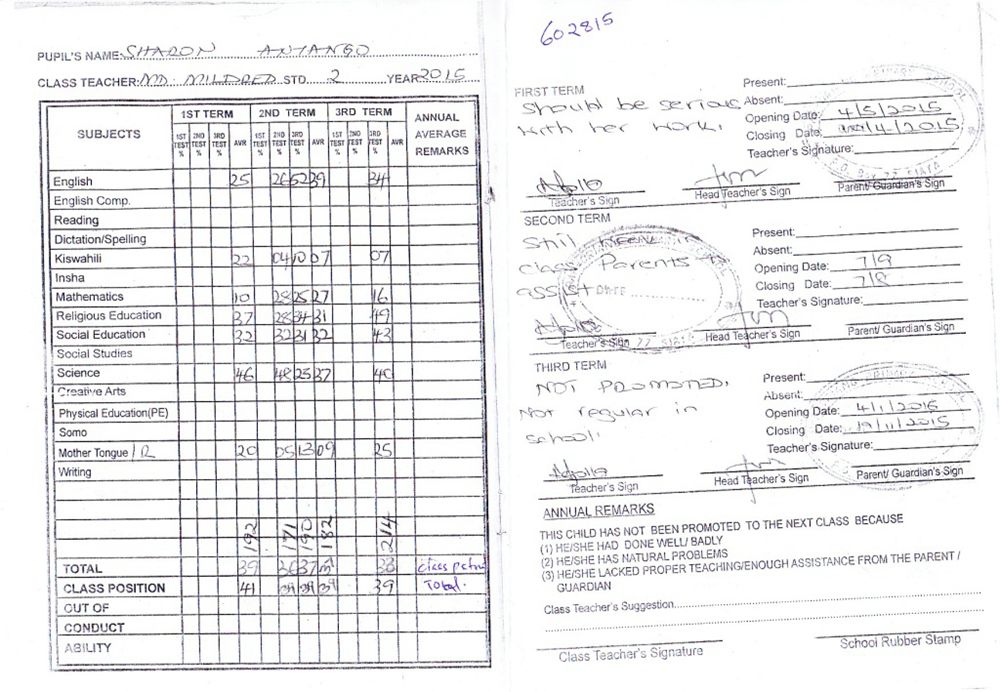 PUPIL'S NAME: SHARON ANYANGO
CLASS TEACHER: MD. MILDRED STD. 2 YEAR 2015
SUBJECTS 1ST TERM 2ND TERM 3RD TERM ANNUAL AVERAGE REMARKS
1ST TEST % 2ND TEST % 3RD TEST % AVR 1ST TEST % 2ND TEST % 3RD TEST % AVR 1ST TEST % 2ND TEST % 3RD TEST % AVR
English 25 26 52 39 34
English Comp.
Reading
Dictation/Spelling
Kiswahili 22 04 10 07 07
Insha
Mathematics 10 28 25 27 16
Religious Education 37 28 34 31 49
Social Education 32 32 31 32 43
Social Studies
Science 46 48 25 37 40
Creative Arts
Physical Education(PE)
Somo
Mother Tongue / R 20 05 13 09 25
Writing
192 171 190 182 214
TOTAL 39 36 37 38 class
CLASS POSITION 41 39 39 39 39 Total.
OUT OF
CONDUCT
ABILITY
602815
FIRST TERM
Should be serious
with her work.
Present:
Absent:
Opening Date: 4/5/2015
Closing Date: /4/2015
Teacher's Signature:
Teacher's Sign Head Teacher's Sign Parent/ Guardian's Sign
SECOND TERM
Still weak in
class Parents to
assist
Present:
Absent:
Opening Date: 7/9
Closing Date: 7/8
Teacher's Signature:
Teacher's Sign Head Teacher's Sign Parent/ Guardian's Sign
THIRD TERM
NOT PROMOTED.
Not regular in
school.
Present:
Absent:
Opening Date: 4/1/2016
Closing Date: 19/11/2015
Teacher's Signature:
Teacher's Sign Head Teacher's Sign Parent/ Guardian's Sign
ANNUAL REMARKS
THIS CHILD HAS NOT BEEN PROMOTED TO THE NEXT CLASS BECAUSE
(1) HE/SHE HAD DONE WELL/ BADLY
(2) HE/SHE HAS NATURAL PROBLEMS
(3) HE/SHE LACKED PROPER TEACHING/ENOUGH ASSISTANCE FROM THE PARENT /
GUARDIAN
Class Teacher's Suggestion
Class Teacher's Signature School Rubber Stamp